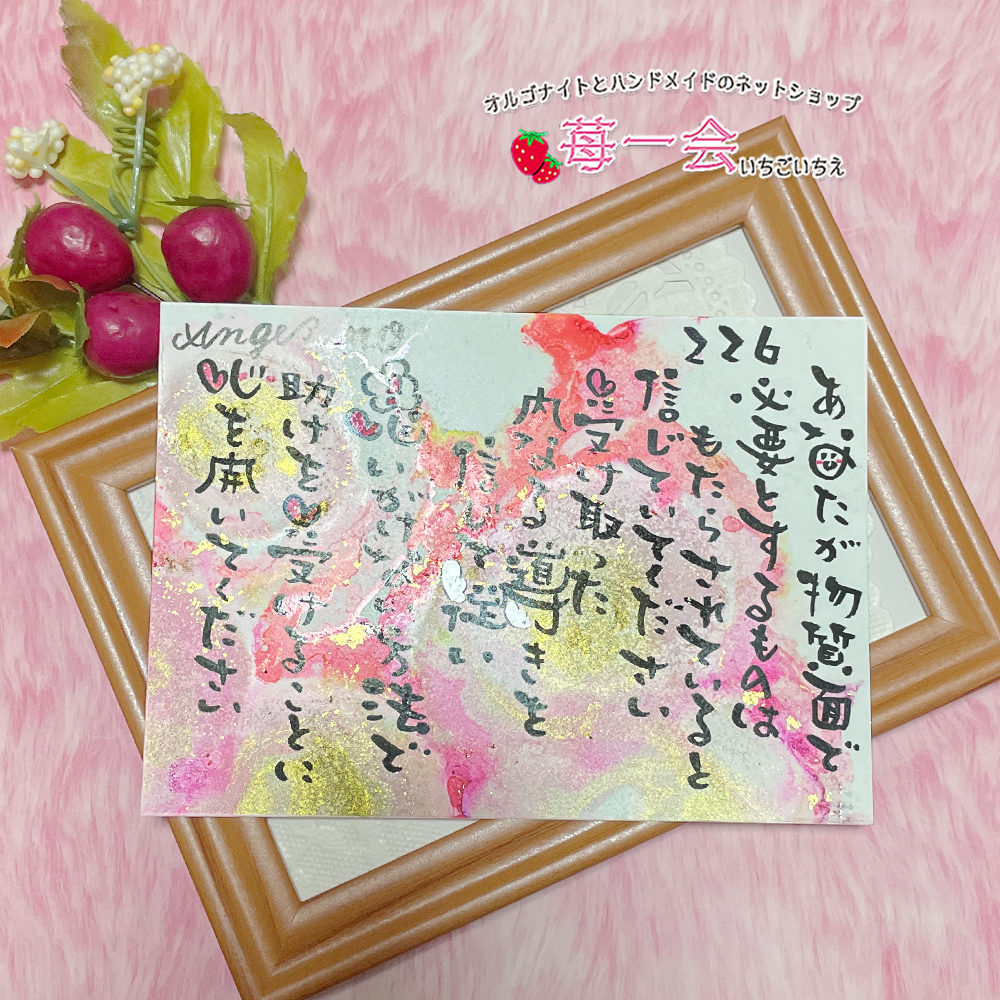 オルゴナイトとハンドメイドのネットショップ
苺一会
いちごいちえ
Angel no
226
あなたが物質面で
必要とするものは
もたらされていると
信じていてください
受け取った
内なる導きを
信じて従い
思いがけない方法で
助けを受けることに
心を開いてください